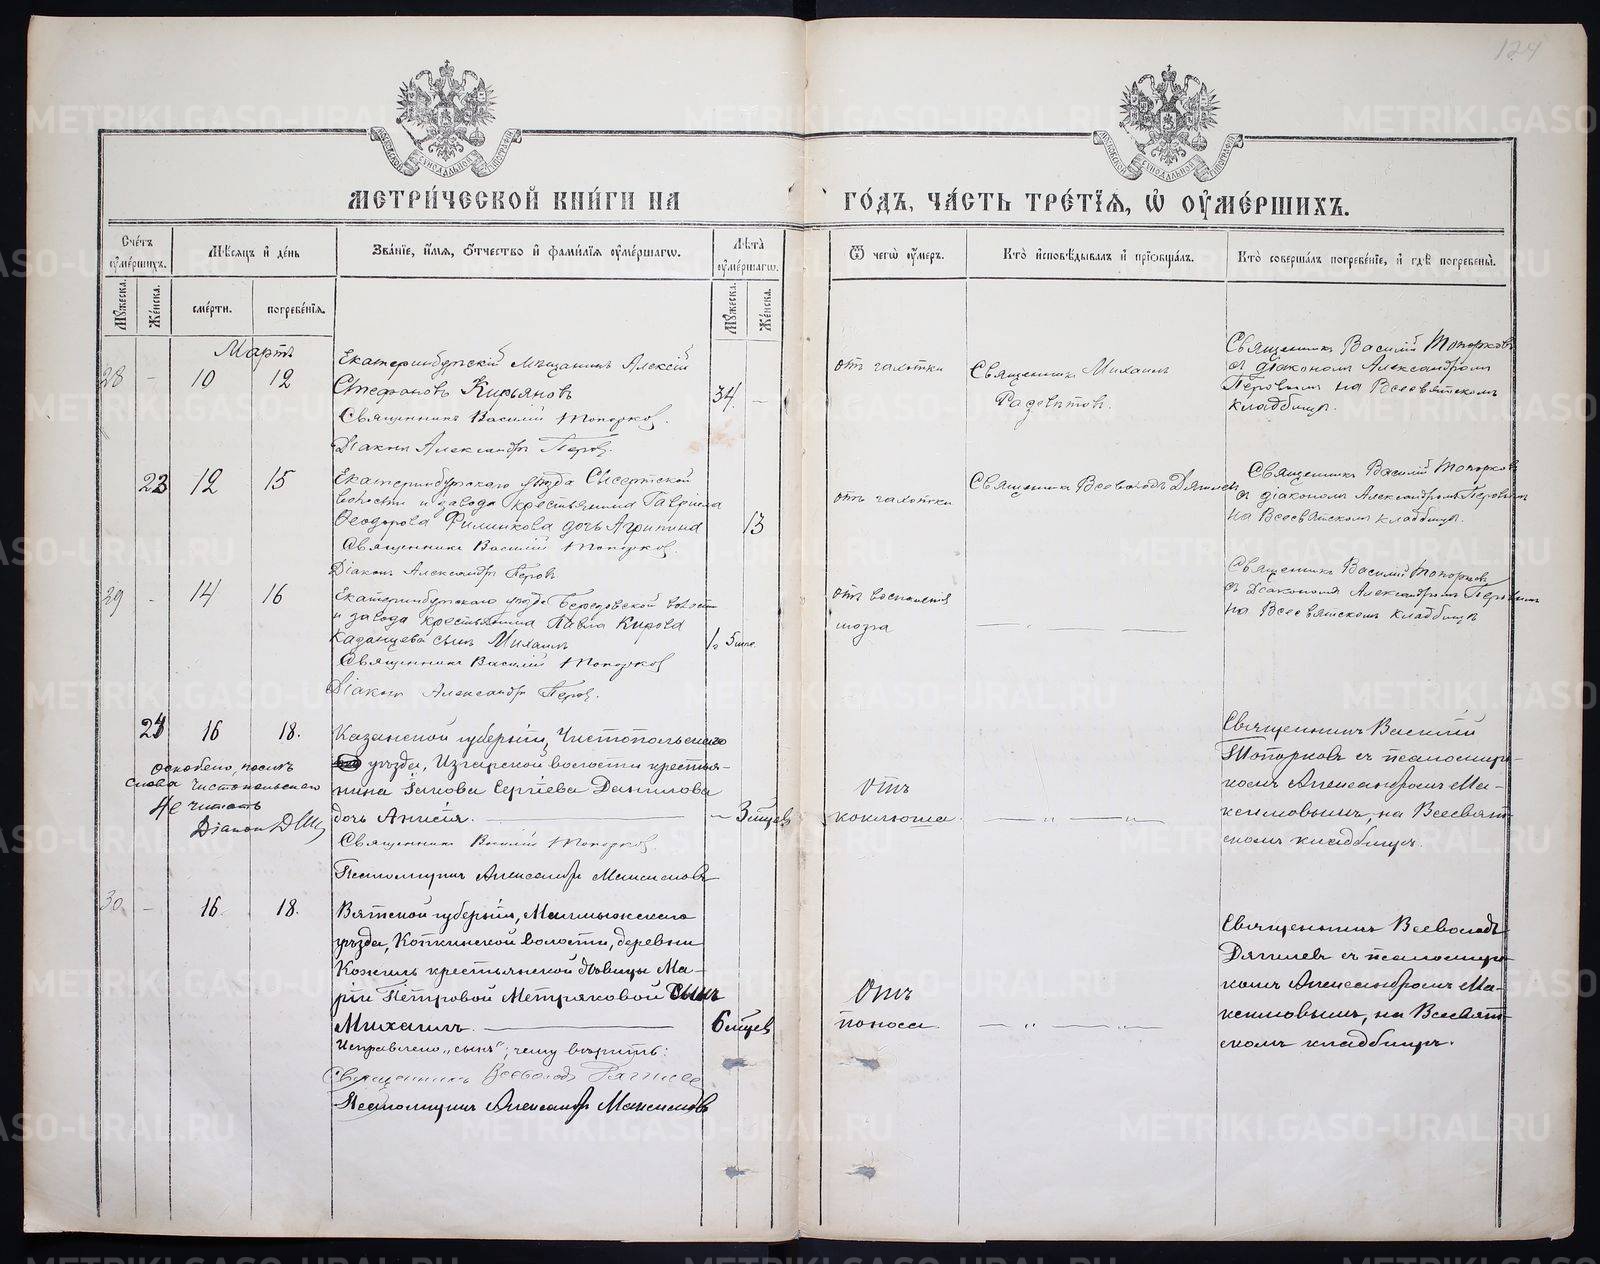 124
МЕТРИЧЕСКОЙ КНИГИ НА ГОДЪ, ЧАСТЬ ТРЕТІЯ, Ѽ ОУМЕРШИХЪ.
Счетъ оумершихъ.
Мѣсяцъ и день
Званіе, имя, ѿчество и фамилія оумершагѡ.
Лѣта оумершагѡ.
Ѿ чегѡ оумеръ.
Кто исповѣдывалъ и пріобщалъ.
Кто совершалъ погребеніе, и гдѣ погребены.
Мужеска.
Женска.
смерти.
погребенія.
Мужеска.
Женска.
Мартъ
28 - 10 12
Екатеринбургскій мѣщанинъ Алексій
Стефановъ Кирьяновъ
34 -
Священникъ Василій Топорковъ.
Діаконъ Александръ Перов.
отъ чахотки
Священникъ Михаилъ
Священникъ Василій Топорковъ
съ діакономъ Александромъ
Перовымъ на Всесвятскомъ
кладбищѣ.
23 12 15
Екатеринбургскаго уѣзда Сысертской
волости и завода крестьянина Гавріила
Ѳеодорова Филинкова дочь Агрипина
13
Священникъ Василій Топорков.
Діаконъ Александръ Перовъ
отъ чахотки
Священникъ Всеволодъ Дягилевъ
Священникъ Василій Топорковъ
съ діакономъ Александромъ Перовымъ
на Всесвятскомъ кладбищѣ.
29 - 14 16
Екатеринбургскаго уѣзда Березовской волости
и завода крестьянина Павла Кирова
Казанцева сынъ Михаилъ
1 г 5 мѣс.
Священникъ Василій Топорков
Діаконъ Александръ Перов.
отъ воспаленія
мозга
Священникъ Василій Топорковъ
съ Діакономъ Александромъ Перовымъ
на Всесвятскомъ кладбищѣ
24 16 18.
Казанской губерніи, Чистопольскаго
уѣзда, Изгарской волости крестья-
нина Іакова Сергіева Данилова
дочь Анисія.
- 3 мѣсцев
Священникъ Василій Топорков.
Псаломщикъ Александръ Максимовъ
слова Чистопольскаго
не читать
Діакон
Отъ
коклюша.
— „ — „
Священникъ Василій
Топорковъ съ псаломщи-
комъ Александромъ Ма-
ксимовымъ, на Всесвят-
скомъ кладбищѣ.
30. - 16. 18.
Вятской губерніи, Малмыжскаго
уѣзда, Копкинской волости, деревни
Кожиль крестьянской дѣвицы Ма-
ріи Петровой Метряковой сынъ
Михаилъ.
6 мѣцев
Исправлено „сынъ“; чему вѣрить:
Священникъ Всеволодъ Дягилев
Псаломщикъ Александръ Максимовъ
Отъ
поноса.
— „ — „
Священникъ Всеволодъ
Дягилевъ съ псаломщи-
комъ Александромъ Ма-
ксимовымъ, на Всесвят-
скомъ кладбищѣ.
METRIKI.GASO-URAL.RU